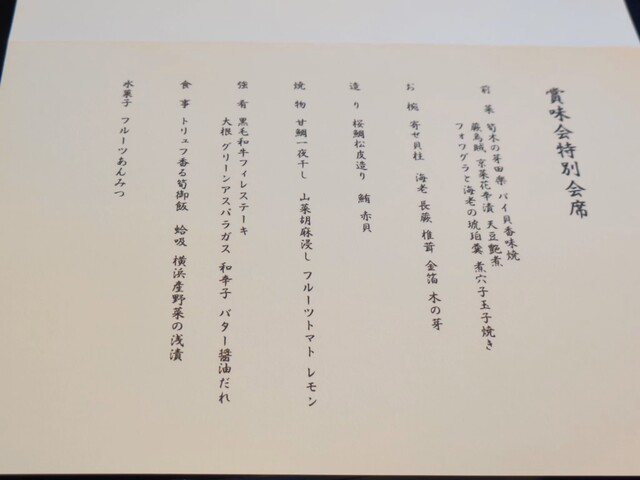 賞味会特別会席
前菜 筍木の芽田楽 バイ貝香味焼
蕨烏賊 京菜花辛漬 天豆艶煮
フォワグラと海老の琥珀羹 煮穴子玉子焼き
お椀 寄せ貝柱 海老 長蕨 椎茸 金箔 木の芽
造り 桜鯛松皮造り 鮪 赤貝
焼物 甘鯛一夜干し 山菜胡麻浸し フルーツトマト レモン
強肴 黒毛和牛フィレステーキ
大根 グリーンアスパラガス 和辛子 バター醤油だれ
食事 トリュフ香る筍御飯 蛤吸 横浜産野菜の浅漬
水菓子 フルーツあんみつ